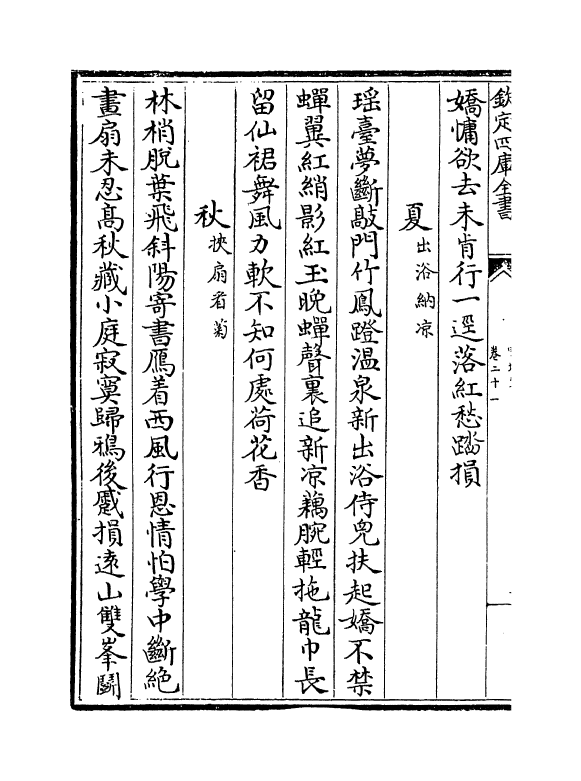 欽定四庫全書
卷二十一
嬌慵欲去未肯行一逕落紅愁踏損
夏出浴納凉
瑶臺夢斷敲門竹鳳蹬温泉新出浴侍兒扶起嬌不禁
蟬翼紅綃影紅玉晚蟬聲裏追新凉藕腕輕拖龍巾長
留仙裙舞風力軟不知何處荷花香
秋挾扇看菊
林梢脱葉飛斜陽寄書鴈着西風行恩情怕學中斷絶
畫扇未忍髙秋藏小庭寂寞歸鴉後蹙損逺山雙峯鬭